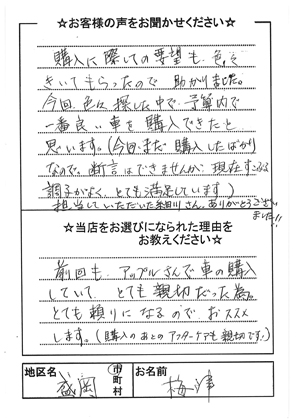 ☆お客様の声をお聞かせください☆
購入に際しての要望も、色々
きいてもらったので 助かりました。
今回、色々探した中で、予算内で
一番良い車を購入できたと
思います。(今回、まだ購入したばかり
なので、断言はできませんが、現在すこぶる
調子がよく、とても満足しています)
担当していただいた細川さん、ありがとうござい
ました!!
☆当店をお選びになられた理由を
お教えください☆
前回も、アップルさんで車の購入
していて、とても親切だった為。
とても頼りになるので、おススメ
します。(購入のあとのアフターケアも親切です!)
地区名 盛岡 市町村 お名前 梅津